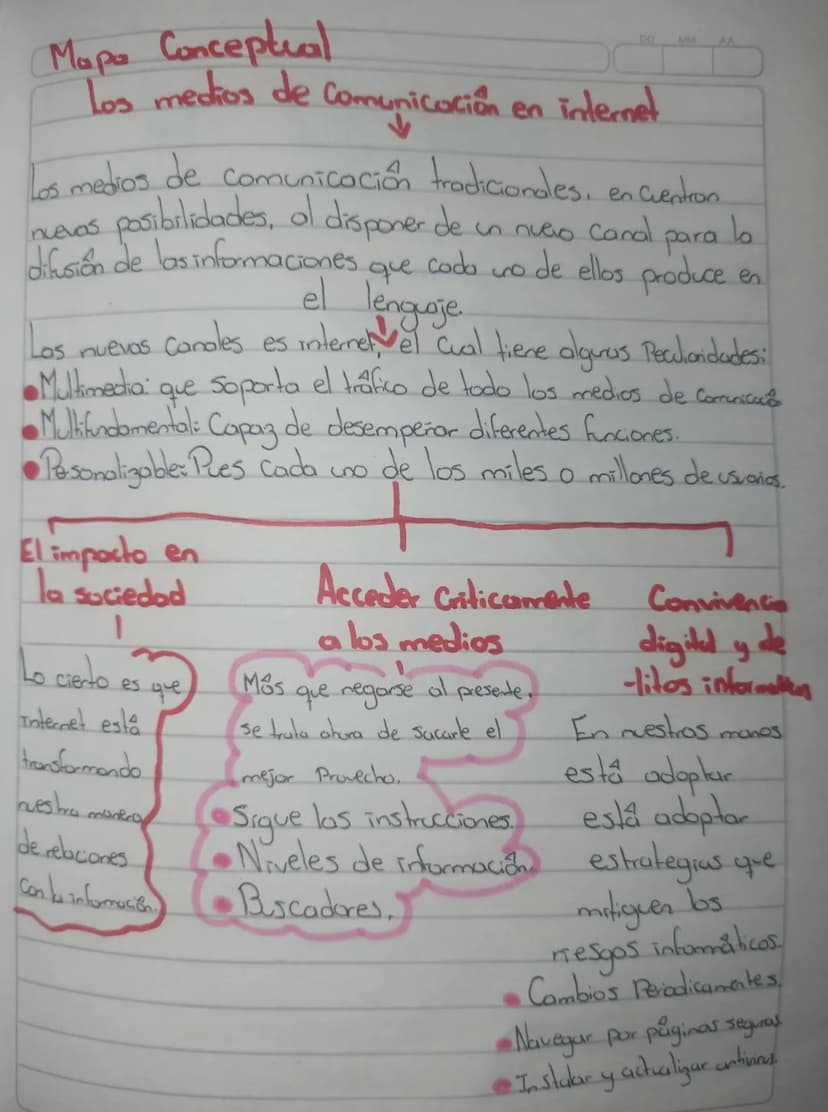 DD MM AA
Mapa Conceptual
Los medios de comunicación en internet
Los medios de comunicación tradicionales, encuentran
nuevas posibilidades, al disponer de un nuevo canal para la
difusión de las informaciones que cada uno de ellos produce en
el lenguaje.
Los nuevos canales es internet, el cual tiene algunas Peculiaridades:
Multimedia: que soporta el tráfico de todo los medios de comunicació
Multifundamental: Capaz de desempeñar diferentes funciones.
Personalizable: Pues cada uno de los miles o millones de usuarios.
El impacto en
la sociedad
Lo cierto es que
Internet está
transformando
nuestra manera
de relaciones
con la información.
Acceder Criticamente
a los medios
Más que negarse al presente,
se trata ahora de sacarle el
mejor Provecho.
Sigue las instrucciones.
Niveles de información
Buscadores.
Convivencia
digital y de
-litos informaticos
En nuestros manos
está adoptar
está adoptar
estrategias que
mitiguen los
riesgos informáticos.
Cambios Periodicamentes.
Navegar por páginas seguras
Instalar y actualizar antivirus.